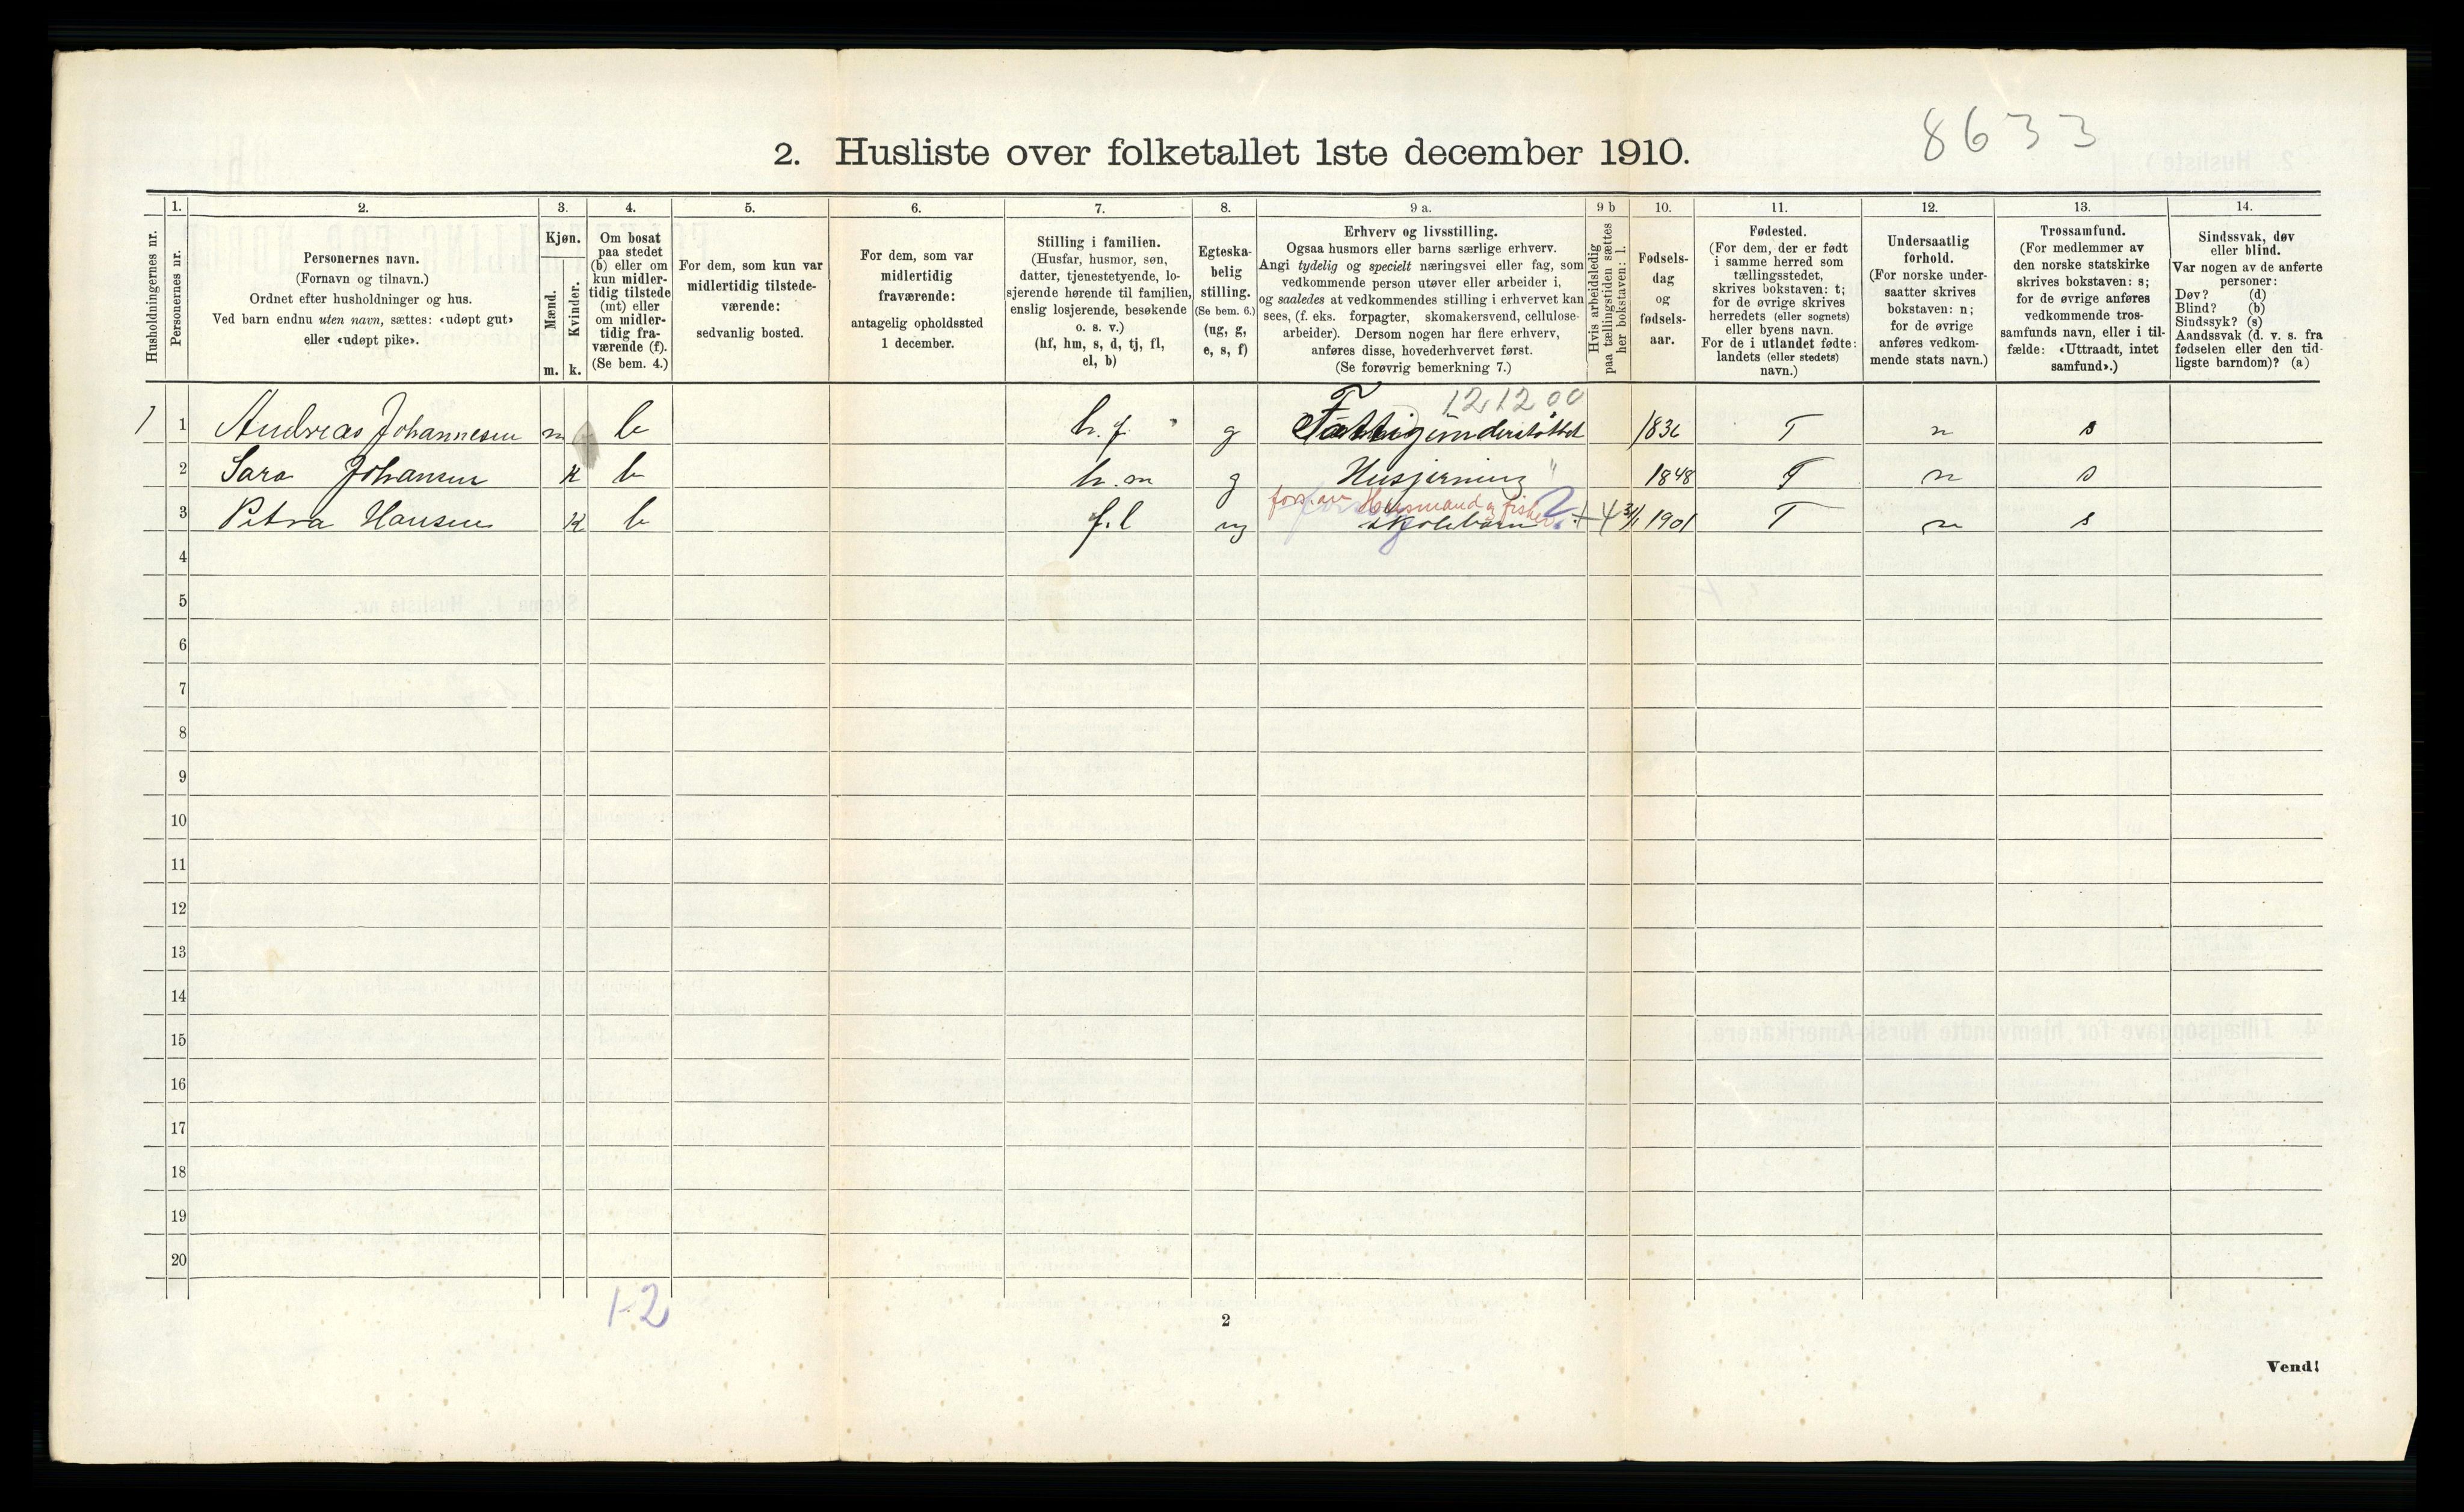 8633
2. Husliste over folketallet 1ste december 1910.
Husholdningernes nr.
1.
Personernes nr.
2.
Personernes navn.
(Fornavn og tilnavn.)
Ordnet efter husholdninger og hus.
Ved barn endnu uten navn, sættes: «udøpt gut»
eller «udøpt pike».
3.
Kjøn.
Mænd.
Kvinder.
m. k.
4.
Om bosat
paa stedet
(b) eller om
kun midler-
tidig tilstede
(mt) eller
om midler-
tidig fra-
værende (f).
(Se bem. 4.)
5.
For dem, som kun var
midlertidig tilstede-
værende:
sedvanlig bosted.
6.
For dem, som var
midlertidig
fraværende:
antagelig opholdssted
1 december.
7.
Stilling i familien.
(Husfar, husmor, søn,
datter, tjenestetyende, lo-
sjerende hørende til familien,
enslig losjerende, besøkende
o. s. v.)
(hf, hm, s, d, tj, fl,
el, b)
8.
Egteska-
belig
stilling.
(Se bem. 6.)
(ug, g,
e, s, f)
9 a.
Erhverv og livsstilling.
Ogsaa husmors eller barns særlige erhverv.
Angi tydelig og specielt næringsvei eller fag, som
vedkommende person utøver eller arbeider i,
og saaledes at vedkommendes stilling i erhvervet kan
sees, (f. eks. forpagter, skomakersvend, cellulose-
arbeider). Dersom nogen har flere erhverv,
anføres disse, hovederhvervet først.
(Se forøvrig bemerkning 7.)
9 b
Hvis arbeidsledig
paa tællingstiden sættes
her bokstaven: l.
10.
Fødsels-
dag
og
fødsels-
aar.
11.
Fødested.
(For dem, der er født
i samme herred som
tællingsstedet,
skrives bokstaven: t;
for de øvrige skrives
herredets (eller sognets)
eller byens navn.
For de i utlandet fødte:
landets (eller stedets)
navn.)
12.
Undersaatlig
forhold.
(For norske under-
saatter skrives
bokstaven: n;
for de øvrige
anføres vedkom-
mende stats navn.)
13.
Trossamfund.
(For medlemmer av
den norske statskirke
skrives bokstaven: s;
for de øvrige anføres
vedkommende tros-
samfunds navn, eller i til-
fælde: «Uttraadt, intet
samfund».)
14.
Sindssvak, døv
eller blind.
Var nogen av de anførte
personer:
Døv? (d)
Blind? (b)
Sindssyk? (s)
Aandssvak (d. v. s. fra
fødselen eller den tid-
ligste barndom)? (a)
121200
1 1 Andreas Johannesen m b h.f g Fattigunderstøttet 1836 T n s
2 Sara Johansen k b h.m g Husgjerning " 1848 T n s
fors. av Husmand & fisker
3 Petra Hansen k b f.l ug skolebarn 31/1 1901 T n s
4
5
6
7
8
9
10
11
12
13
14
15
16
17
18
19
20
1-2
2
Vend!